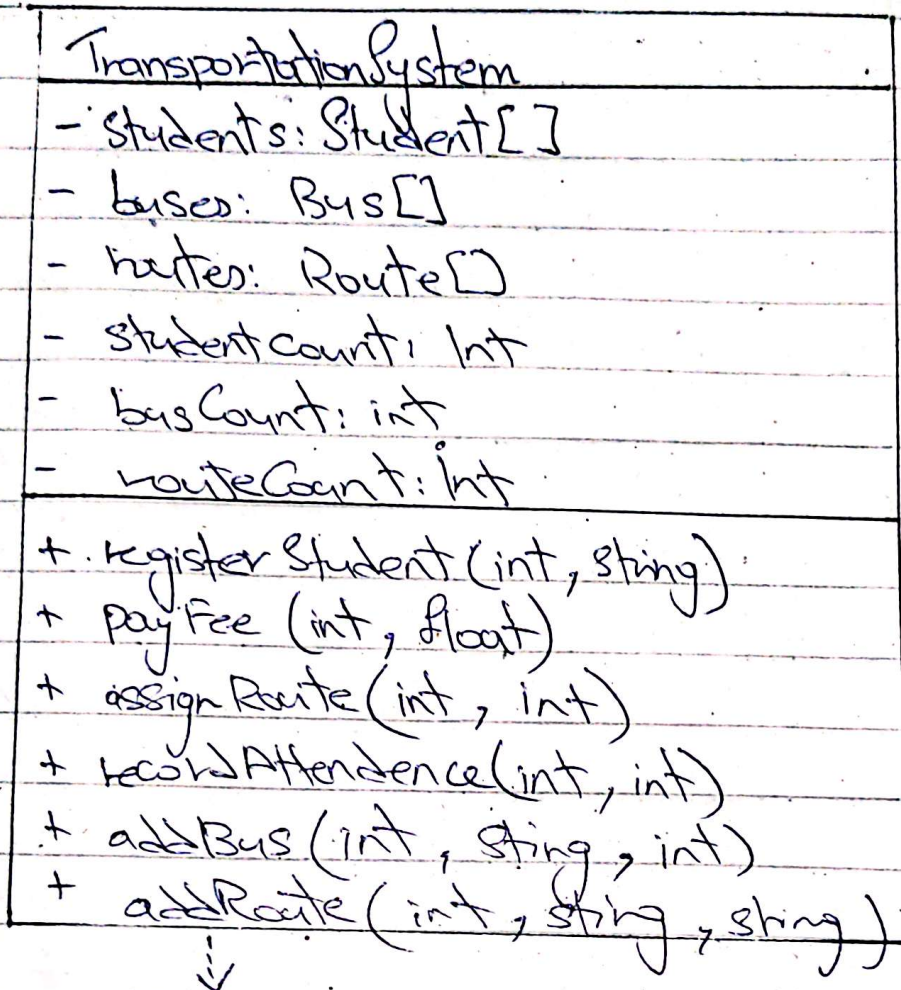 TransportationSystem
- students: Student[]
- buses: Bus[]
- routes: Route[]
- studentcount: Int
- busCount: int
- routeCount: Int
+ registerStudent(int, string)
+ payFee (int, float)
+ assignRoute(int, int)
+ recordAttendence(int, int)
+ addBus(int, sting, int)
+ addRoute(int, sting, sting)